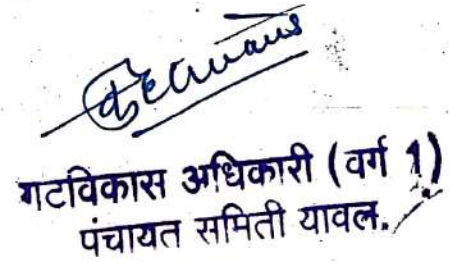 गटविकास अधिकारी (वर्ग 1)
पंचायत समिती यावल.